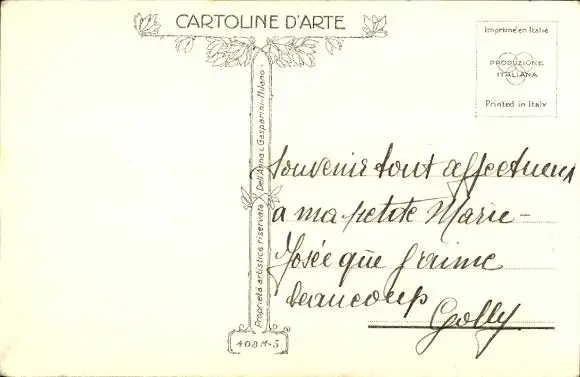 CARTOLINE D'ARTE
Imprimé en Italie
PRODUZIONE
ITALIANA
Printed in Italy
Proprietà artistica riservata Dell'Anna & Gasparini-Milano-
408M-5
Souvenir tout affectueux
a ma petite Marie-
Josée que j'aime
beaucoup
Golly